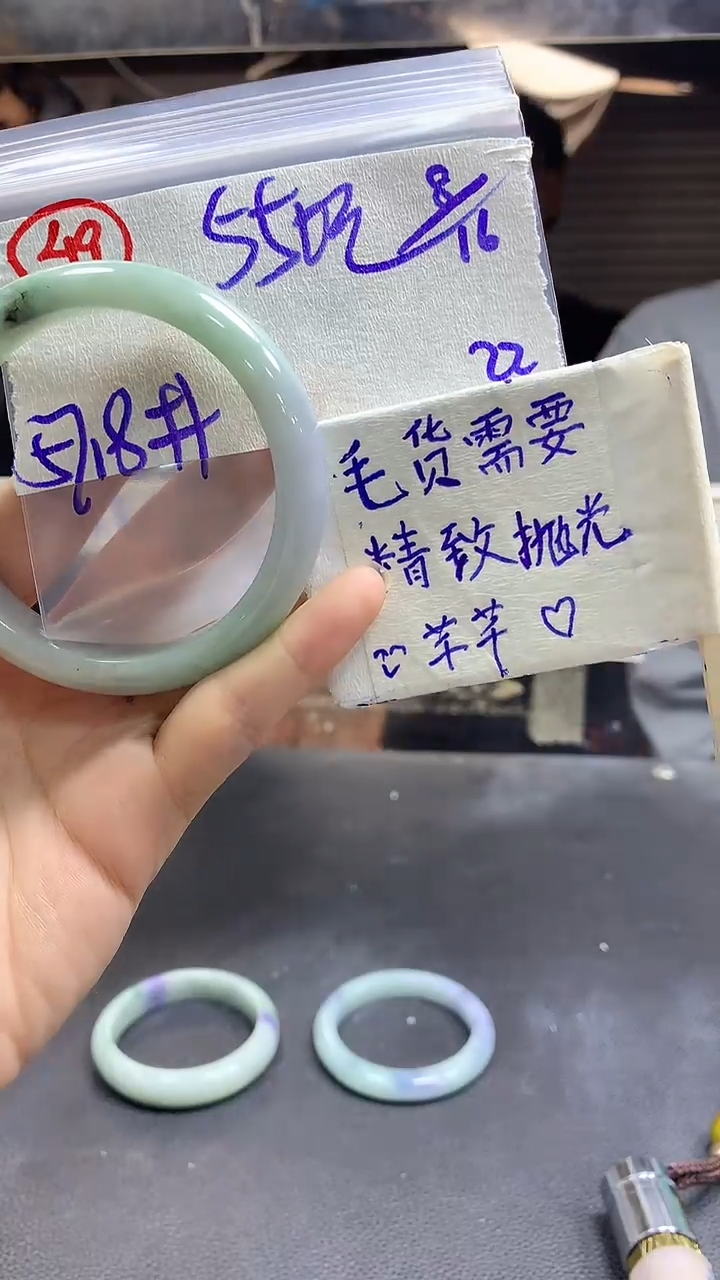 49
55圈 8/16
22
5718井
毛货需要
精致抛光
芊芊♡